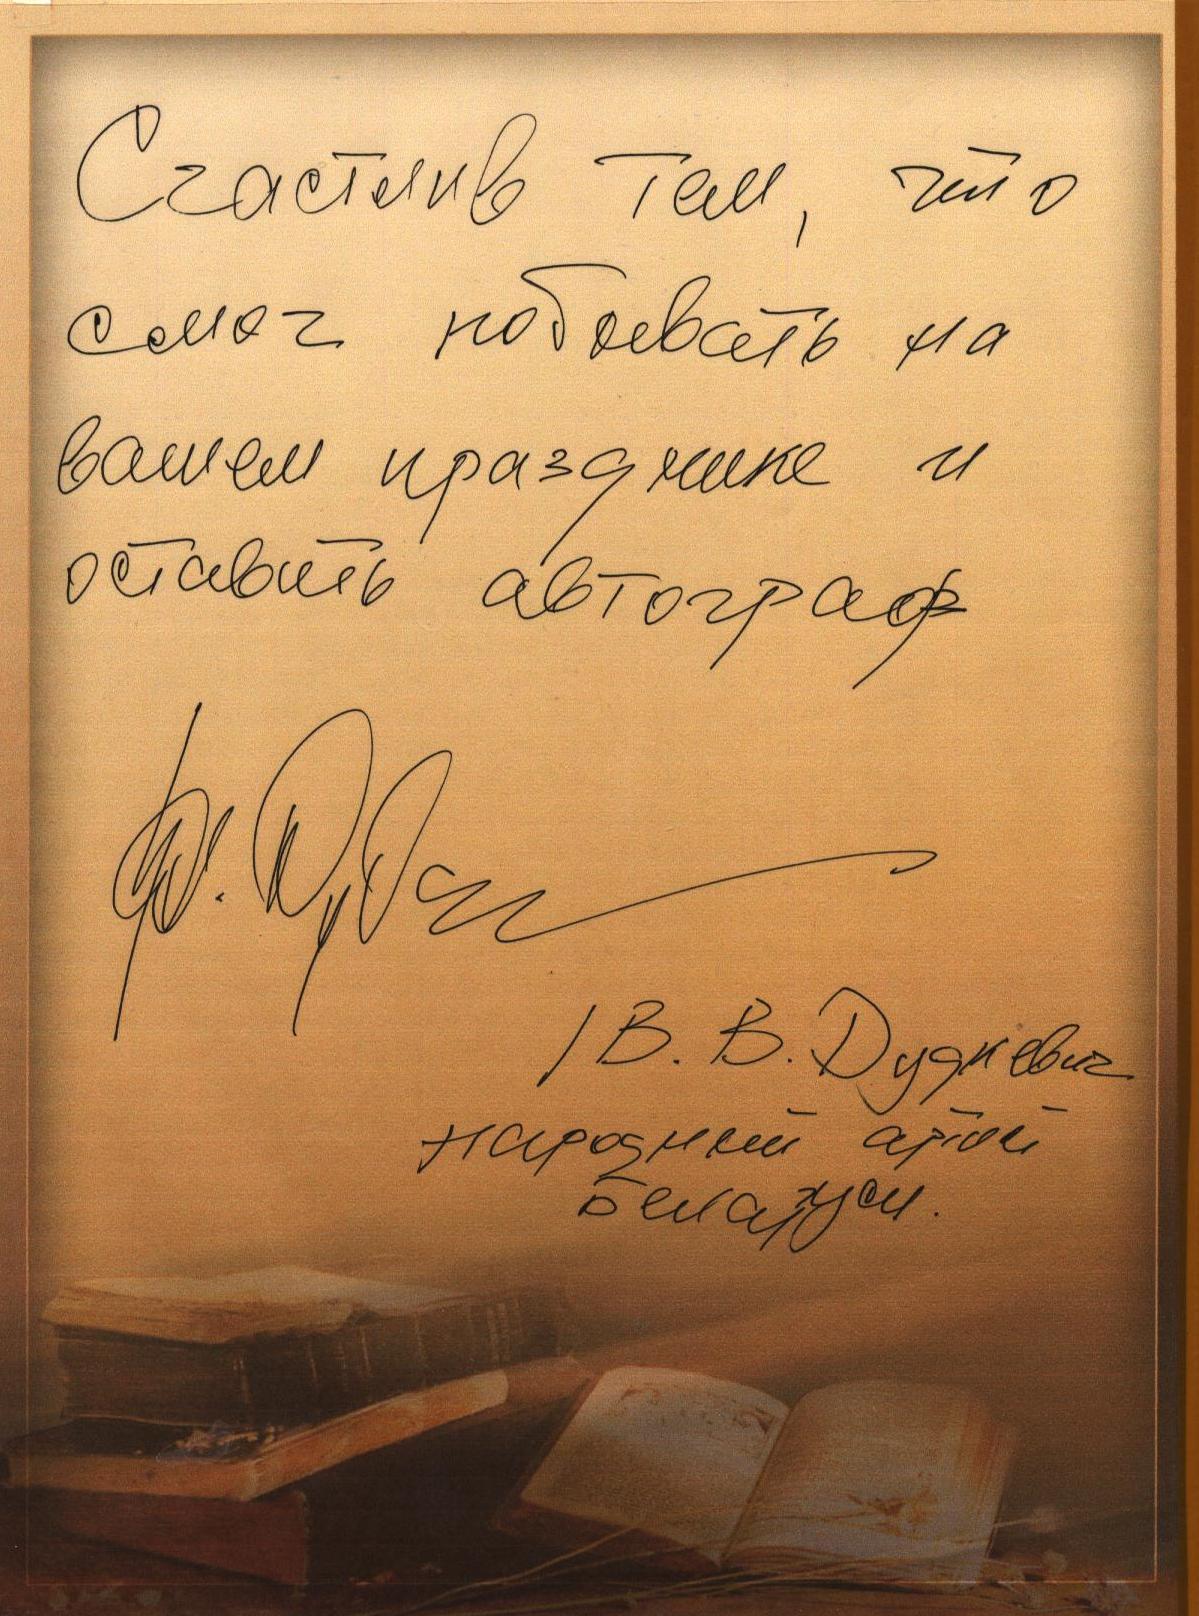 Счастлив тем, что
смог побывать на
вашем празднике и
оставить автограф
/В. В. Дудкевич
народный артист
Беларуси.